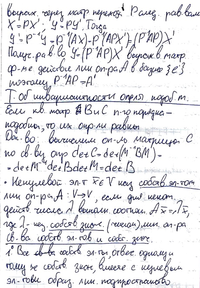 через матр перехода P
X=PX'; Y=PY'. Тогда
Y'=P⁻¹Y=P⁻¹(AX)=P⁻¹APX'=(P⁻¹AP)X'
Получ. рав-во Y'=(P⁻¹AP)X' в матр
ф-ме действ лин оп-ра A в базисе {e'}
поэтому P⁻¹AP=A'
Т об инвариантности опред подоб м.
Если кв. матр A и C n-го порядка
подобны, то их опр-ли равны
Док-во: вычислим оп-ль матрицы C
по св-ву опр detC=det(M⁻¹BM)=
=detM⁻¹detBdetM=detB
• Ненулевой эл-т x∈V наз собств эл-том
лин оп-ра, A: V→V, если для некот.
действ числа λ выполн соотнош. Ax=λx,
где λ- наз собств знач. (числом) лин оп-ра
Св-ва собств эл-тов и собс. знач.
1° Все собств эл-ты, отвеч одному и
тому же собств знач, вместе с нулевым
эл-том образ. лин. подпространство